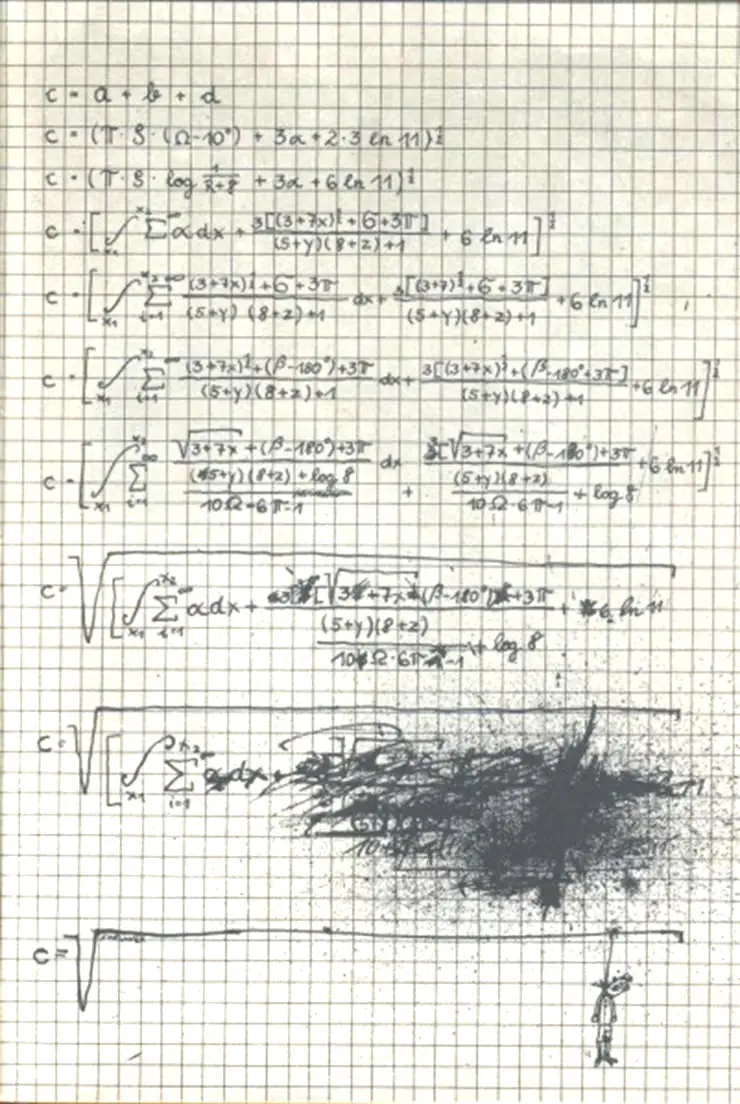 c = a + b + d
c = (π·S·(Ω-10°) + 3α+2·3 ln 11)^½
c = (π·S·log 1/(2+8) + 3α+6 ln 11)^½
c = [∫ x₁ x₂ Σ ∞ α dx + 3[(3+7x)^½+6+3π]/((5+y)(8+z)+1) + 6 ln 11]^½
c = [∫ x₁ x₂ Σ i=1 ∞ ((3+7x)^½+6+3π)/((5+y)(8+z)+1) dx+ 3[(3+7)^½+6+3π]/((5+y)(8+z)+1) +6 ln 11]^½
c = [∫ x₁ x₂ Σ i=1 ∞ ((3+7x)^½+(β-180°)+3π)/((5+y)(8+z)+1) dx+ 3[(3+7x)^½+(β-180°+3π]/((5+y)(8+z)+1) +6 ln 11]^½
c = [∫ x₁ x₂ Σ i=1 ∞ (√3+7x +(β-180°)+3π)/((5+y)(8+z)+log 8/10Ω-6π-1) dx + 3[√3+7x +(β-180°)+3π/((5+y)(8+z)/10Ω·6π-1 + log 8) +6 ln 11]^½
c = √[∫ x₁ x₂ Σ i=1 ∞ α dx + 3[√3+7x+(β-180°)+3π/((5+y)(8+z)/10Ω·6π-1 + log 8) + 6 ln 11
c = √[∫ x₁ x₂ Σ i=1 ∞ α dx +
c = √